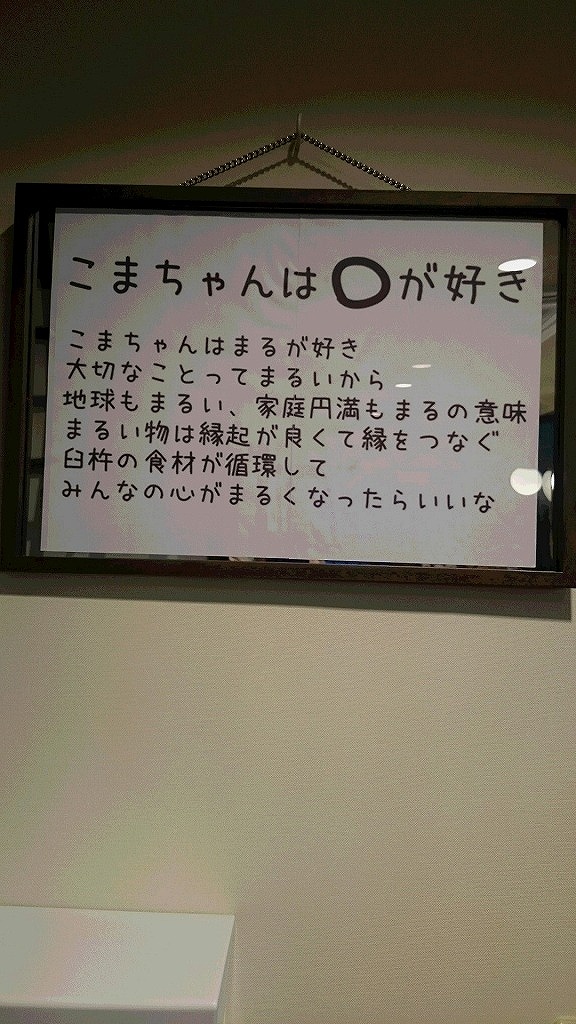 こまちゃんは〇が好き
こまちゃんはまるが好き
大切なことってまるいから
地球もまるい、家庭円満もまるの意味
まるい物は縁起が良くて縁をつなぐ
臼杵の食材が循環して
みんなの心がまるくなったらいいな